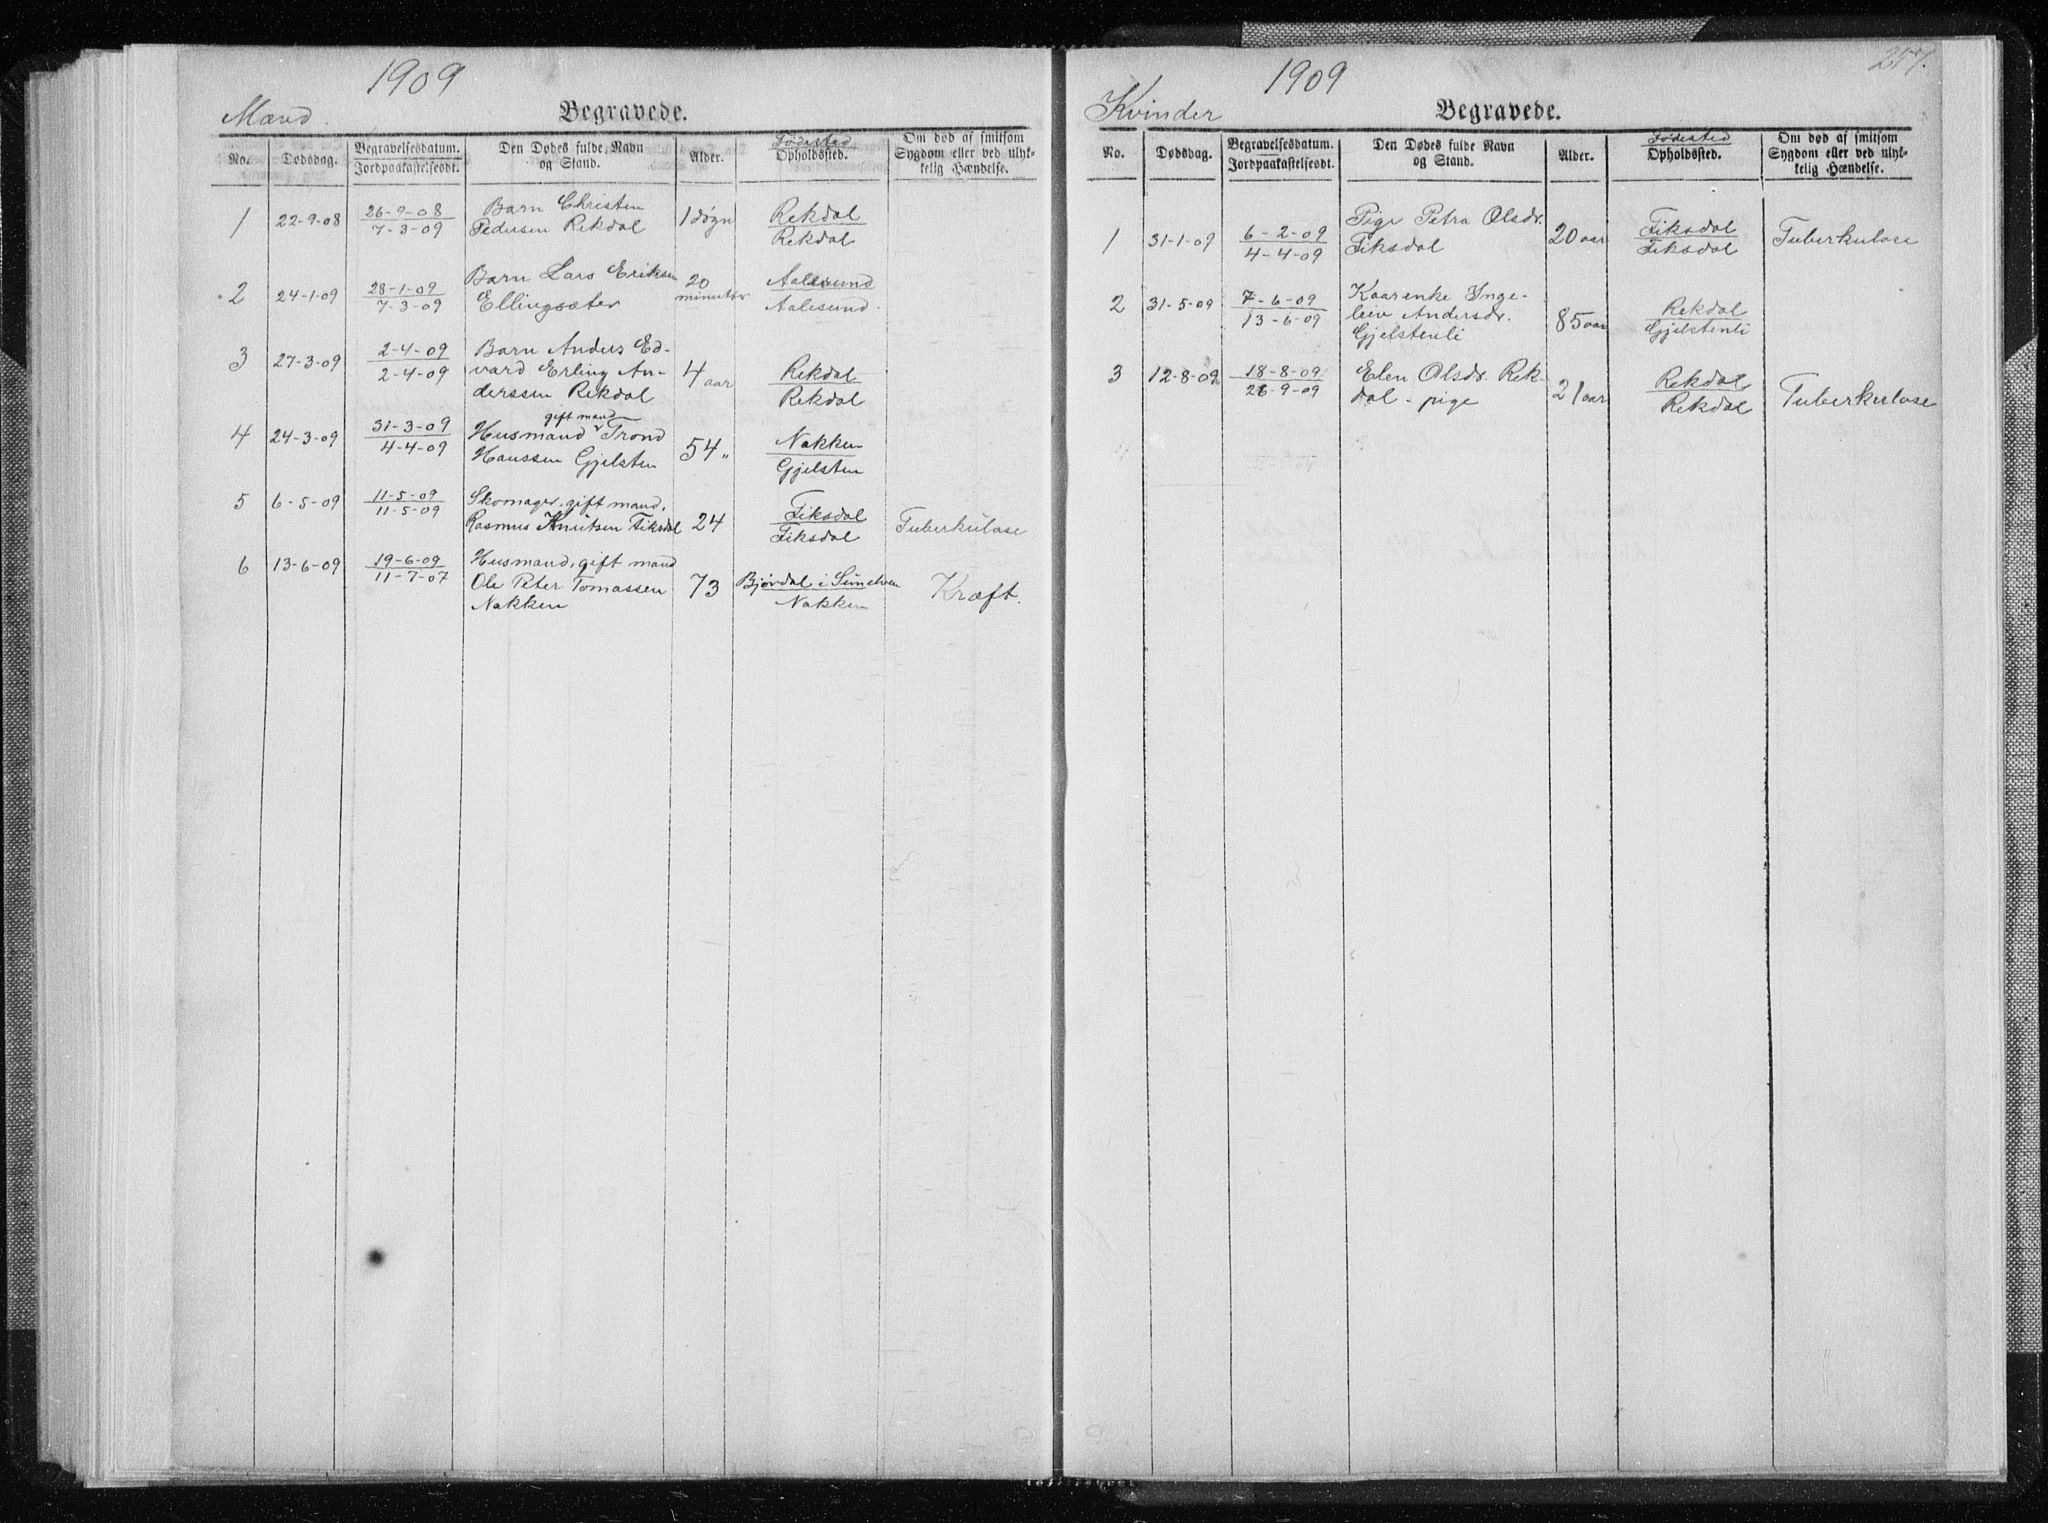 1909
Mænd.
Begravede.
No.
Dødsdag.
Begravelsesdatum.
Jordpaakastelsesdt.
Den Dødes fulde Navn
og Stand.
Alder.
Fødested
Opholdssted.
Om død af smitsom
Sygdom eller ved ulyk-
kelig Hændelse.
1 22-9-08 26-9-08 Barn Christen 1 døgn Rekdal
7-3-09 Pedersen Rekdal Rekdal
2 24-1-09 28-1-09 Barn Lars Eriksen 20 Aalesund
7-3-09 Ellingsæter minutter Aalesund.
3 27-3-09 2-4-09 Barn Anders Ed-
2-4-09 vard Erling An- 4 aar Rekdal
derssen Rekdal Rekdal
gift mand
4 24-3-09 31-3-09 Husmand v Trond 54 " Nakken
4-4-09 Hanssen Gjelsten Gjelsten
5 6-5-09 11-5-09 Skomager, gift mand, Fiksdal
11-5-09 Rasmus Knutsen Fiksdal 24 Fiksdal Tuberkulose
6 13-6-09 19-6-09 Husmand, gift mand
11-7-07 Ole Peter Tomassen 73 Bjørdal i Sunelven Kræft.
Nakken Nakken
1909
257.
Kvinder
Begravede.
No.
Dødsdag.
Begravelsesdatum.
Jordpaakastelsesdt.
Den Dødes fulde Navn
og Stand.
Alder.
Fødested
Opholdssted.
Om død af smitsom
Sygdom eller ved ulyk-
kelig Hændelse.
1 31-1-09 6-2-09 Pige Petra Olsdr. 20 aar Fiksdal Tuberkulose
4-4-09 Fiksdal Fiksdal
2 31-5-09 7-6-09 Kaarenke Inge-
13-6-09 leiv Andersdr. 85 aar Rekdal
Gjelstenli Gjelstenli
3 12-8-09 18-8-09 Elen Olsdr. Rek- 21 aar Rekdal Tuberkulose
26-9-09 dal - pige Rekdal